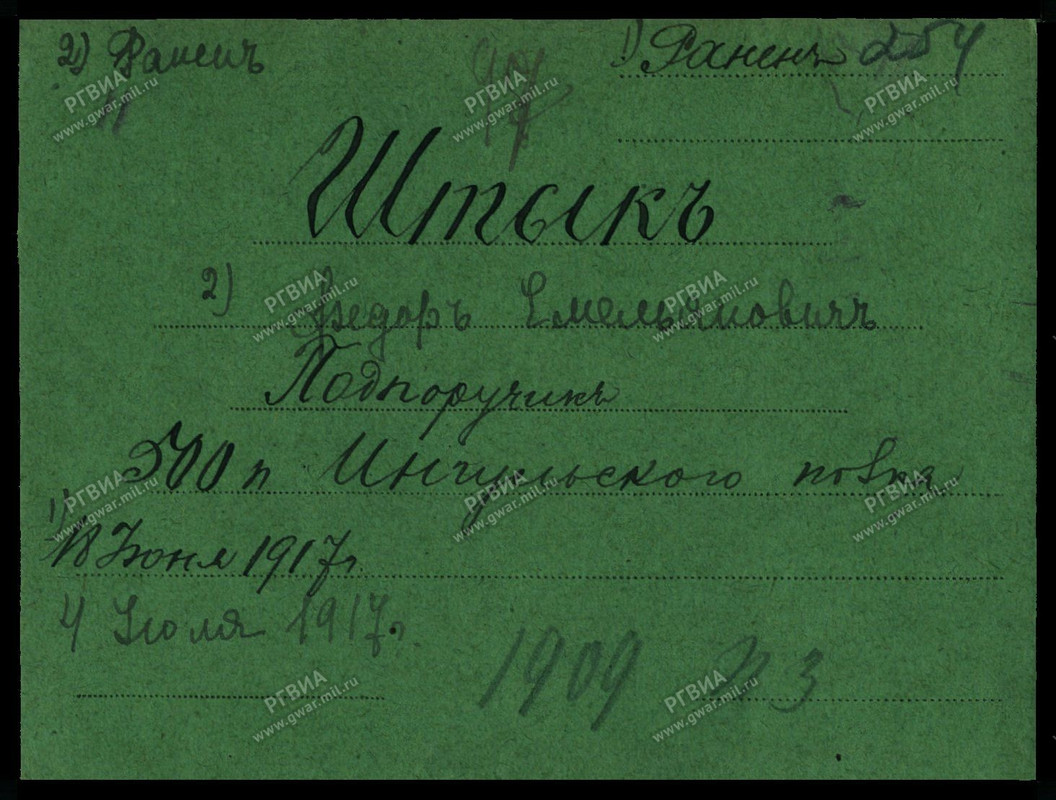 2) Раненъ
1) Раненъ 254
97
Штыкъ
2) Федоръ Емельяновичъ
Подпоручикъ
500 п Ингульского полка
1)
18 Іюня 1917 г.
4 Іюля 1917 г.
1909 3
РГВИА
www.gwar.mil.ru
РГВИА
www.gwar.mil.ru
РГВИА
www.gwar.mil.ru
РГВИА
www.gwar.mil.ru
РГВИА
www.gwar.mil.ru
РГВИА
www.gwar.mil.ru
РГВИА
www.gwar.mil.ru
РГВИА
www.gwar.mil.ru
РГВИА
www.gwar.mil.ru
РГВИА
www.gwar.mil.ru